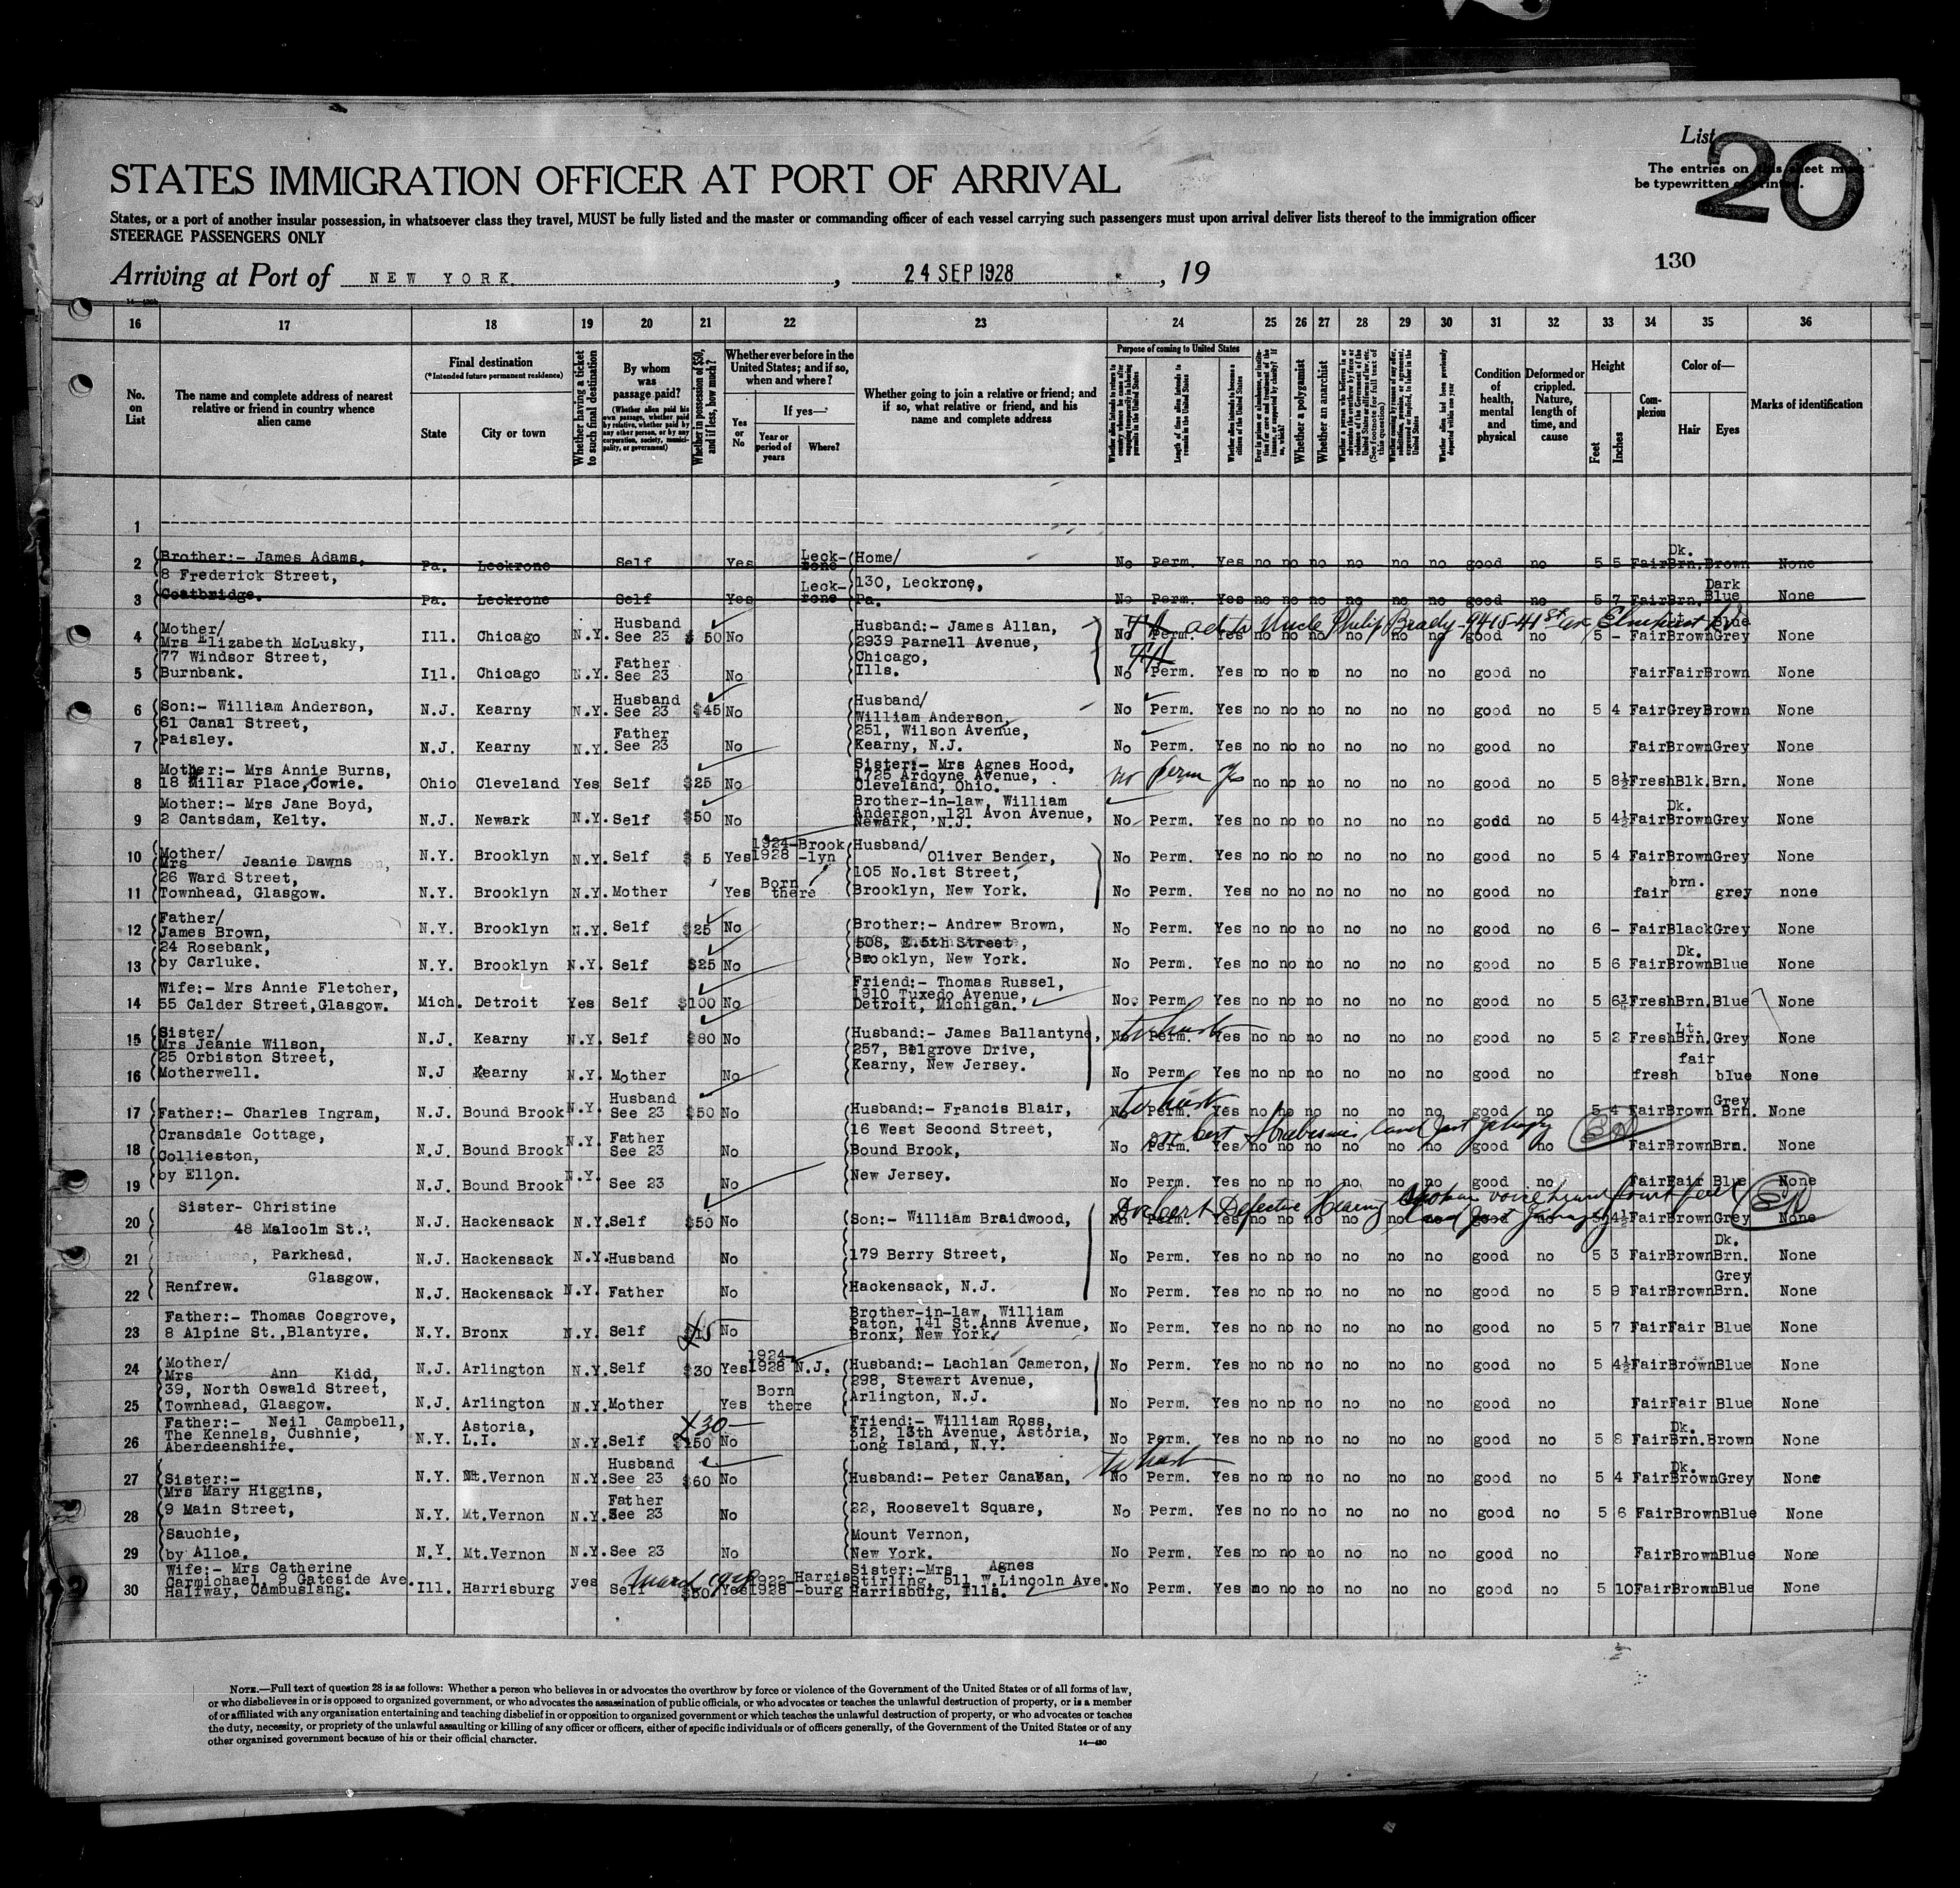 List
20
The entries on this sheet must
be typewritten or printed.
STATES IMMIGRATION OFFICER AT PORT OF ARRIVAL
States, or a port of another insular possession, in whatsoever class they travel, MUST be fully listed and the master or commanding officer of each vessel carrying such passengers must upon arrival deliver lists thereof to the immigration officer
STEERAGE PASSENGERS ONLY
130
Arriving at Port of NEW YORK. , 24 SEP 1928 , 19
16 17 18 19 20 21 22 23 24 25 26 27 28 29 30 31 32 33 34 35 36
No. on List
The name and complete address of nearest relative or friend in country whence alien came
Final destination
(*Intended future permanent residence)
State
City or town
Whether having a ticket to such final destination
By whom was passage paid?
(Whether alien paid his own passage, whether paid by relative, whether paid by any other person, or by any corporation, society, municipality, or government)
Whether in possession of $50, and if less, how much?
Whether ever before in the United States; and if so, when and where?
Yes or No
If yes—
Year or period of years
Where?
Whether going to join a relative or friend; and if so, what relative or friend, and his name and complete address
Purpose of coming to United States
Length of time alien intends to remain in the United States
Whether alien intends to become a citizen of the United States
Whether a polygamist
Whether an anarchist
Condition of health, mental and physical
Deformed or crippled. Nature, length of time, and cause
Height
Feet
Inches
Complexion
Color of—
Hair
Eyes
Marks of identification
1
2 Brother:- James Adams, Pa. Leckrone Self Yes Leck-rone Home/ No Perm. Yes no no no no no no good 5 5 Fair Dk. Brn. Brown None
8 Frederick Street, 130, Leckrone,
3 Coatbridge. Pa. Leckrone Self Yes Leck-rone Pa. No Perm. Yes no no no no no no good 5 7 Fair Brn. Dark Blue None
4 Mother/ Mrs Elizabeth McLusky, Ill. Chicago N.Y. Husband See 23 $ 50 No Husband:- James Allan, 2939 Parnell Avenue, No Perm. to Uncle Philip Brady - 9415-41st av Elmhurst 5 - Fair Brown Grey None
77 Windsor Street, Chicago,
5 Burnbank. Ill. Chicago N.Y. Father See 23 No Ills. No Perm. Yes no no no no no no good no Fair Fair Brown None
6 Son:- William Anderson, N.J. Kearny N.Y. Husband See 23 $45 No Husband/ William Anderson, No Perm. Yes no no no no no no good no 5 4 Fair Grey Brown None
61 Canal Street, 251, Wilson Avenue,
7 Paisley. N.J. Kearny N.Y. Father See 23 No Kearny, N.J. No Perm. Yes no no no no no no good no Fair Brown Grey None
8 Mother:- Mrs Annie Burns, 18 Millar Place, Cowie. Ohio Cleveland Yes Self $25 No Sister:- Mrs Agnes Hood, 1725 Ardoyne Avenue, Cleveland, Ohio. no perm Yes no no no no no no good no 5 8½ Fresh Blk. Brn. None
9 Mother:- Mrs Jane Boyd, 2 Cantsdam, Kelty. N.J. Newark N.Y. Self $50 No Brother-in-law, William Anderson, 121 Avon Avenue, Newark, N.J. No Perm. Yes no no no no no no good no 5 4½ Fair Dk. Brown Grey None
10 Mother/ Mrs Jeanie Dawns N.Y. Brooklyn N.Y. Self $ 5 Yes 1924-1928 Brook-lyn Husband/ Oliver Bender, No Perm. Yes no no no no no no good no 5 4 Fair Brown Grey None
26 Ward Street, 105 No.1st Street,
11 Townhead, Glasgow. N.Y. Brooklyn N.Y. Mother Yes Born there Brooklyn, New York. No Perm. Yes no no no no no no good no fair brn. grey none
12 Father/ James Brown, N.Y. Brooklyn N.Y. Self $25 No Brother:- Andrew Brown, No Perm. Yes no no no no no no good no 6 - Fair Black Grey None
24 Rosebank, 508, E.5th Street,
13 by Carluke. N.Y. Brooklyn N.Y. Self $25 No Brooklyn, New York. No Perm. Yes no no no no no no good no 5 6 Fair Dk. Brown Blue None
14 Wife:- Mrs Annie Fletcher, 55 Calder Street, Glasgow. Mich. Detroit Yes Self $100 No Friend:- Thomas Russel, 1910 Tuxedo Avenue, Detroit, Michigan. No. Perm. Yes no no no no no no good no 5 6¾ Fresh Brn. Blue None
15 Sister/ Mrs Jeanie Wilson, N.J. Kearny N.Y. Self $80 No Husband:- James Ballantyne, to husb No Perm. Yes no no no no no no good no 5 2 Fresh Lt. Brn. Grey None
25 Orbiston Street, 257, Belgrove Drive,
16 Motherwell. N.J Kearny N.Y. Mother No Kearny, New Jersey. No Perm. Yes no no no no no no good no fresh fair blue None
17 Father:- Charles Ingram, N.J. Bound Brook N.Y. Husband See 23 $50 No Husband:- Francis Blair, to husb No Perm. Yes no no no no no no good no 5 4 Fair Brown Grey Brn. None
Cransdale Cottage, 16 West Second Street,
18 Collieston, N.J. Bound Brook N.Y. Father See 23 No Bound Brook, Dr cert Strabismus No Perm. Yes no no no no no no good no Fair Brown Brn. None
19 by Ellon. N.J. Bound Brook N.Y. See 23 No New Jersey. No Perm. Yes no no no no no no good no Fair Fair Blue None
20 Sister- Christine 48 Malcolm St., N.J. Hackensack N.Y. Self $50 No Son:- William Braidwood, Dr cert Defective Hearing voice heard four feet No Perm. Yes no no no no no no good no 5 4½ Fair Brown Grey None
21 Parkhead, N.J. Hackensack N.Y. Husband No 179 Berry Street, No Perm. Yes no no no no no no good no 5 3 Fair Brown Dk. Brn. None
22 Renfrew. Glasgow. N.J. Hackensack N.Y. Father No Hackensack, N.J. No Perm. Yes no no no no no no good no 5 9 Fair Brown Grey Brn. None
23 Father:- Thomas Cosgrove, 8 Alpine St., Blantyre. N.Y. Bronx N.Y. Self $15 No Brother-in-law, William Paton, 141 St.Anns Avenue, Bronx, New York. No Perm. Yes no no no no no no good no 5 7 Fair Fair Blue None
24 Mother/ Mrs Ann Kidd, N.J. Arlington N.Y. Self $30 Yes 1924-1928 N.J. Husband:- Lachlan Cameron, No Perm. Yes no no no no no no good no 5 4½ Fair Brown Blue None
39, North Oswald Street, 298, Stewart Avenue,
25 Townhead, Glasgow. N.J. Arlington N.Y. Mother Yes Born there Arlington, N.J. No Perm. Yes no no no no no no good no Fair Fair Blue None
26 Father:- Neil Campbell, The Kennels, Cushnie, Aberdeenshire. N.Y. Astoria, L.I. N.Y. Self 30 $150 No Friend:- William Ross, 312, 13th Avenue, Astoria, Long Island, N.Y. No Perm. Yes no no no no no no good no 5 8 Fair Dk. Brn. Brown None
27 Sister:- Mrs Mary Higgins, N.Y. Mt.Vernon N.Y. Husband See 23 $60 No Husband:- Peter Canavan, to husb No Perm. Yes no no no no no no good no 5 4 Fair Dk. Brown Grey None
28 9 Main Street, N.Y. Mt.Vernon N.Y. Father See 23 No 22, Roosevelt Square, No Perm. Yes no no no no no no good no 5 6 Fair Brown Blue None
Sauchie, Mount Vernon,
29 by Alloa. N.Y. Mt.Vernon N.Y. See 23 No New York. No Perm. Yes no no no no no no good no Fair Brown Blue None
30 Wife:- Mrs Catherine Carmichael, 9 Gateside Ave. Halfway, Cambuslang. Ill. Harrisburg yes Self March 1928 $50 Yes 1922-1928 Harris-burg Sister:-Mrs Agnes Stirling, 511 W.Lincoln Ave. Harrisburg, Ills. No Perm. Yes no no no no no no good no 5 10 Fair Brown Blue None
NOTE.—Full text of question 28 is as follows: Whether a person who believes in or advocates the overthrow by force or violence of the Government of the United States or of all forms of law,
or who disbelieves in or is opposed to organized government, or who advocates the assassination of public officials, or who advocates or teaches the unlawful destruction of property, or is a member
of or affiliated with any organization entertaining and teaching disbelief in or opposition to organized government or which teaches the unlawful destruction of property, or who advocates or teaches
the duty, necessity, or propriety of the unlawful assaulting or killing of any officer or officers, either of specific individuals or of officers generally, of the Government of the United States or of any
other organized government because of his or their official character.
14—430